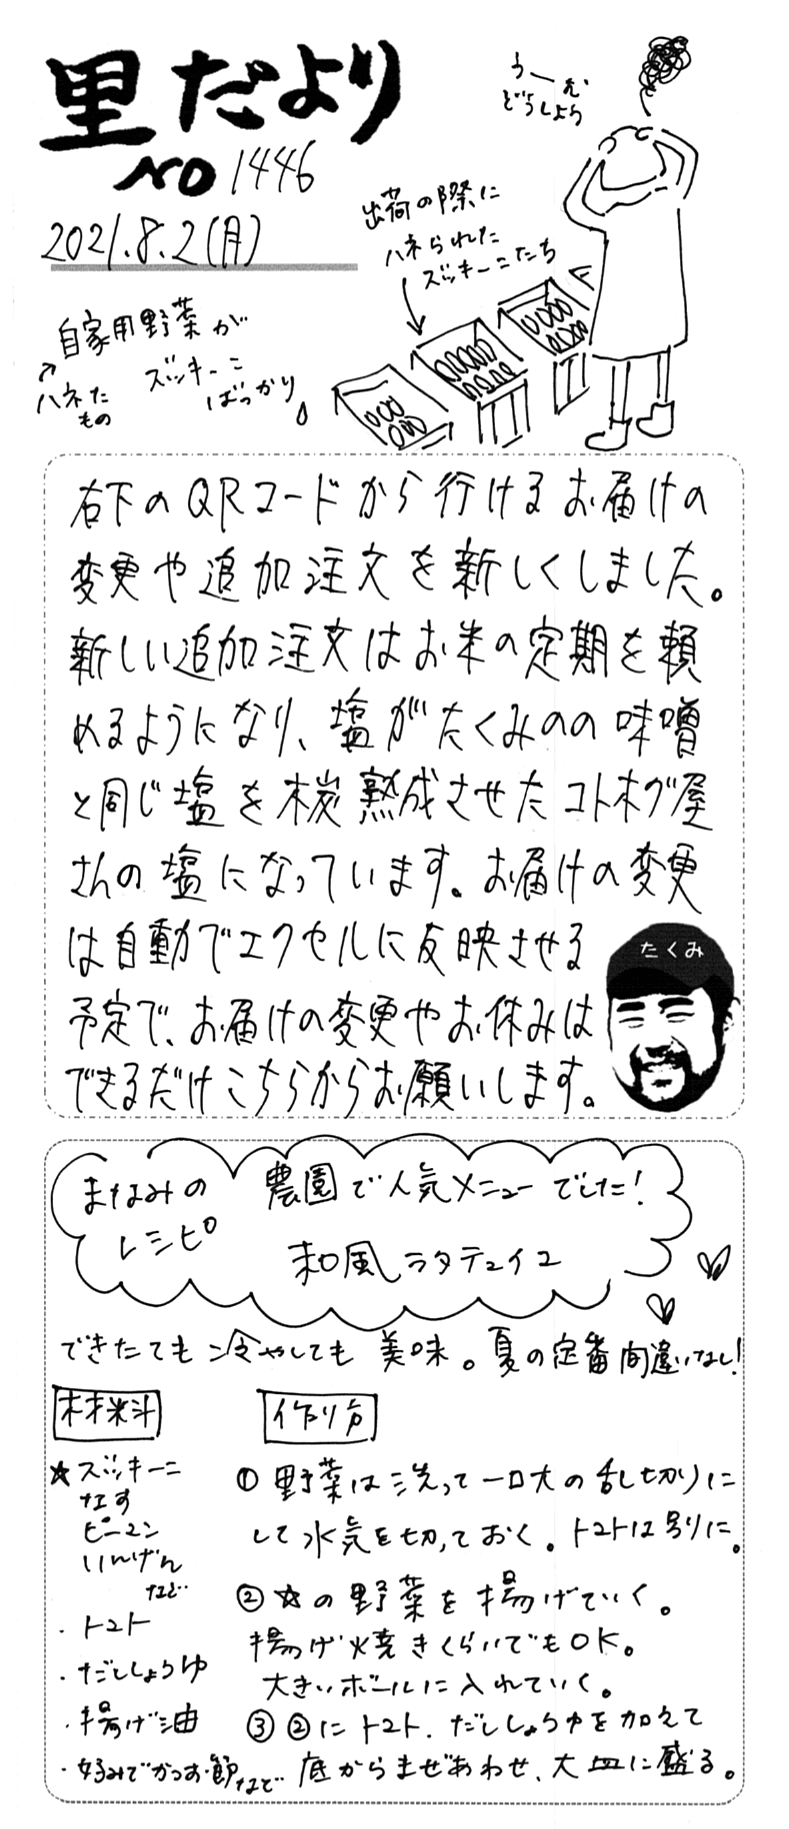 里だより
NO 1446
2021.8.2(月)
うーむ
どうしよう
出荷の際に
ハネられた
ズッキーニたち
自家用野菜が
ズッキーニ
ばっかり
ハネた
もの
右下のQRコードから行けるお届けの
変更や追加注文を新しくしました。
新しい追加注文はお米の定期を頼
めるようになり、塩がたくみのの味噌
と同じ塩を木炭熟成させたコトホグ屋
さんの塩になっています。お届けの変更
は自動でエクセルに反映させる
予定で、お届けの変更やお休みは
できるだけこちらからお願いします。
たくみ
まなみの
レシピ
農園で人気メニューでした!
和風ラタテュイユ
できたても冷やしても美味。夏の定番間違いなし!
材料
☆ズッキーニ
なす
ピーマン
いんげん
など
・トマト
・だししょうゆ
・揚げ油
・好みでかつお節など
作り方
① 野菜は洗って一口大の乱切りに
して水気を切っておく。トマトは別に。
② ☆の野菜を揚げていく。
揚げ焼きくらいでもOK。
大きいボールに入れていく。
③ ②にトマト、だししょうゆを加えて
底からまぜあわせ、大皿に盛る。